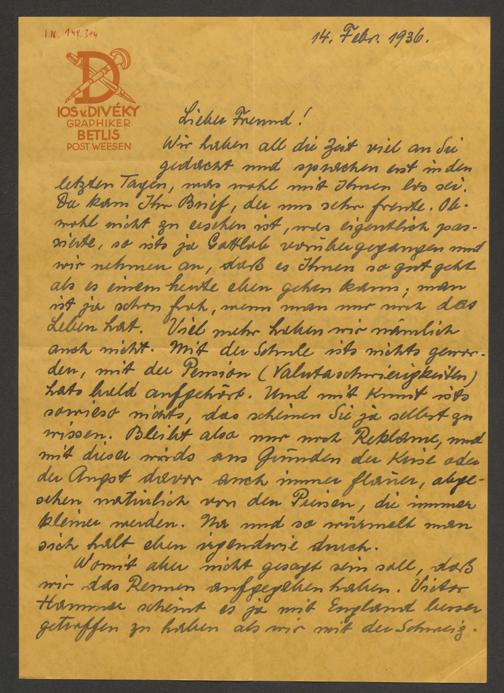 I.N. 191.314
14. Febr. 1936.
D
IOS.v.DIVÉKY
GRAPHIKER
BETLIS
POST WEESEN
Lieber Freund!
Wir haben all die Zeit viel an Sie
gedacht und sprachen erst in den
letzten Tagen, was wohl mit Ihnen los sei.
Da kam Ihr Brief, der uns sehr freute. Ob-
wohl nicht zu ersehen ist, was eigentlich pas-
sierte, so ists ja Gottlob vorübergegangen und
wir nehmen an, daß es Ihnen so gut geht
als es einem heute eben gehen kann; man
ist ja schon froh, wenn man nur noch das
Leben hat. Viel mehr haben wir nämlich
auch nicht. Mit der Schule ists nichts gewor-
den, mit der Pension (Valutaschwierigkeiten)
hats bald aufgehört. Und mit Kunst ists
sowieso nichts, das scheinen Sie ja selbst zu
wissen. Bleibt also nur noch Reklame, und
mit dieser wirds aus Gründen der Krise oder
der Angst davor auch immer flauer, abge-
sehen natürlich von den Preisen, die immer
kleiner werden. Na und so wurmelt man
sich halt eben irgendwie durch.
Womit aber nicht gesagt sein soll, daß
wir das Rennen aufgegeben haben. Victor
Hammer scheint es ja mit England besser
getroffen zu haben als wir mit der Schweiz.